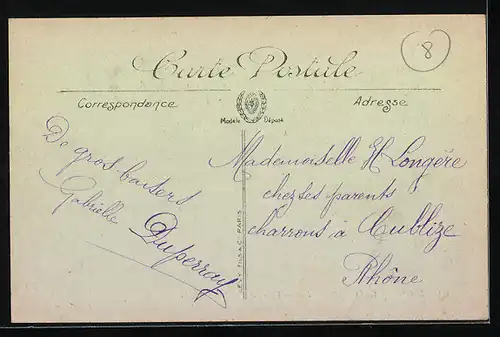 8
Carte Postale
Correspondance
Adresse
Modèle Déposé
De gros baisers
Gabrielle
Duperray
Mademoiselle H Longère
chez ses parents
charrons à Cublize
Rhône
FILS & C. PARIS